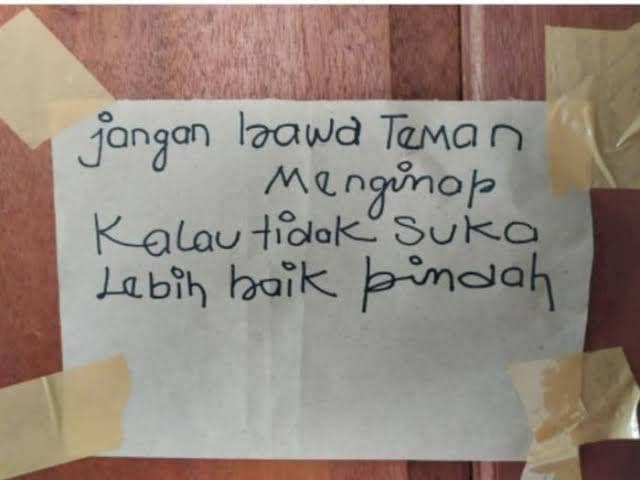 jangan bawa Teman
Menginap
Kalau tidak suka
Lebih baik pindah